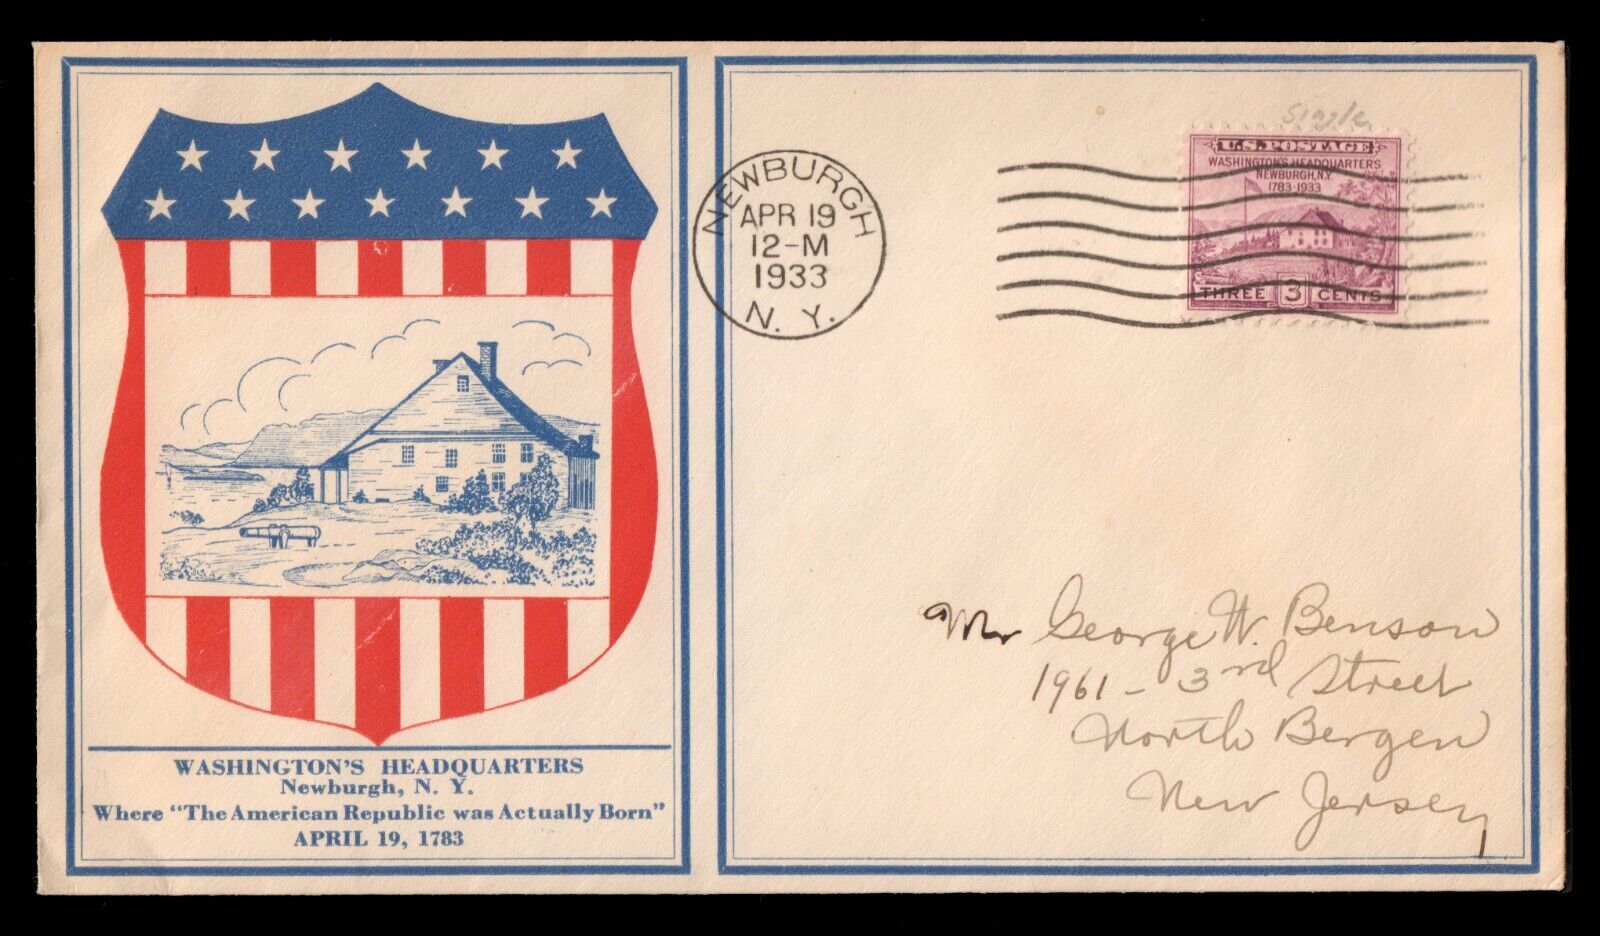 WASHINGTON'S HEADQUARTERS
Newburgh, N. Y.
Where "The American Republic was Actually Born"
APRIL 19, 1783
NEWBURGH
APR 19
12-M
1933
N. Y.
single
U.S. POSTAGE
WASHINGTON'S HEADQUARTERS
NEWBURGH, N.Y.
1783-1933
THREE 3 CENTS
Mr George W. Benson
1961 - 3rd Street
North Bergen
New Jersey